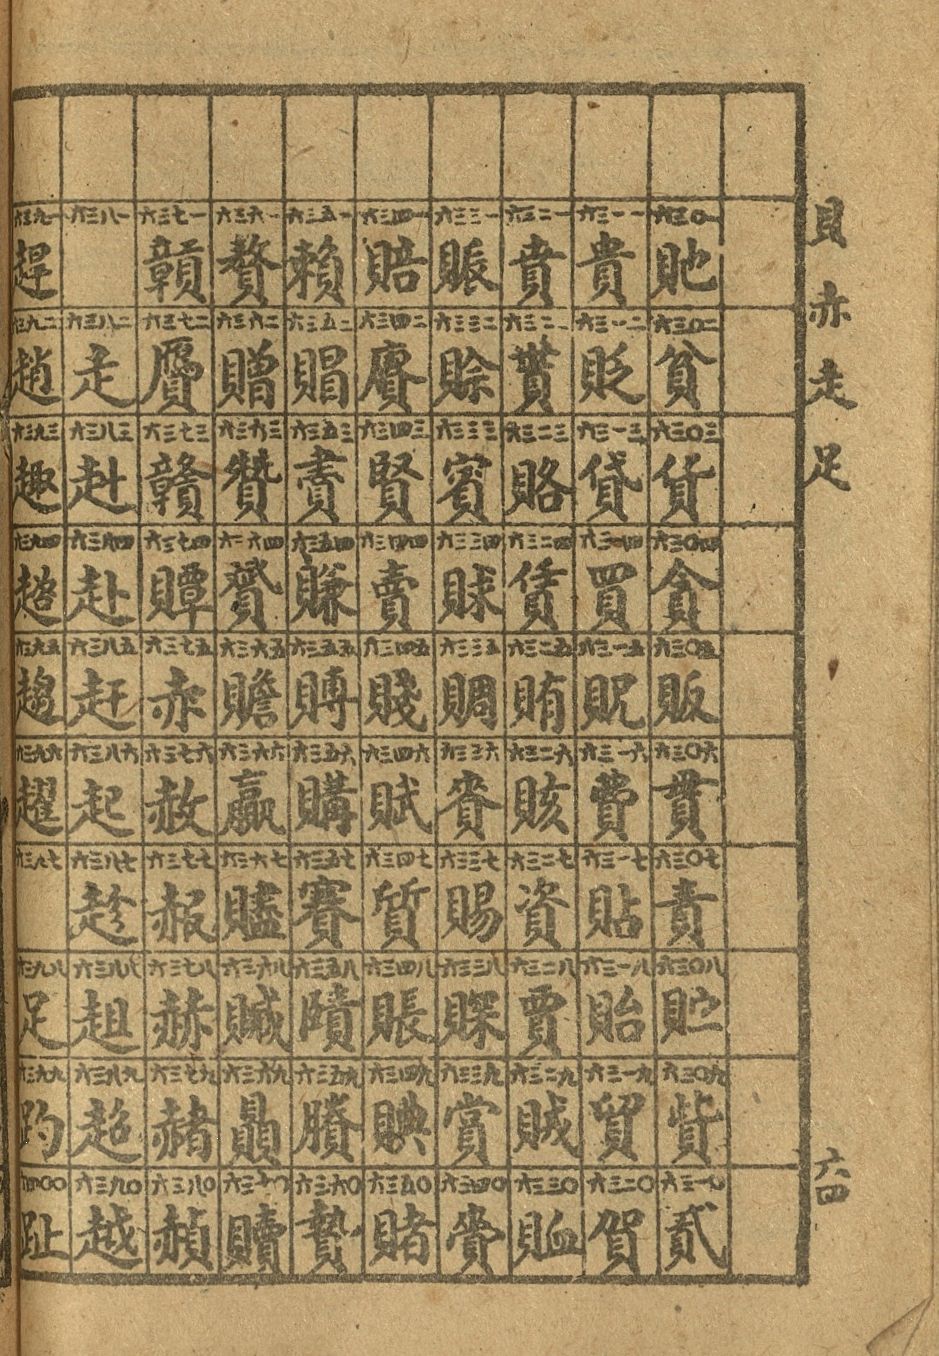 貝赤走足
六四
六三〇一 貤 六三〇二 貧 六三〇三 貨 六三〇四 貪 六三〇五 販 六三〇六 貫 六三〇七 責 六三〇八 貯 六三〇九 貲 六三一〇 貳
六三一一 貴 六三一二 貶 六三一三 貸 六三一四 買 六三一五 貺 六三一六 費 六三一七 貼 六三一八 貽 六三一九 貿 六三二〇 賀
六三二一 賁 六三二二 貰 六三二三 賂 六三二四 賃 六三二五 賄 六三二六 賅 六三二七 資 六三二八 賈 六三二九 賊 六三三〇 賉
六三三一 賑 六三三二 賒 六三三三 賓 六三三四 賕 六三三五 賙 六三三六 賚 六三三七 賜 六三三八 賝 六三三九 賞 六三四〇
六三四一 賠 六三四二 賡 六三四三 賢 六三四四 賣 六三四五 賤 六三四六 賦 六三四七 質 六三四八 賬 六三四九 賟 六三五〇 賭
六三五一 賴 六三五二 賵 六三五三 六三五四 賺 六三五五 賻 六三五六 購 六三五七 賽 六三五八 賾 六三五九 賸 六三六〇 贄
六三六一 贅 六三六二 贈 六三六三 贊 六三六四 贇 六三六五 贍 六三六六 贏 六三六七 贐 六三六八 贓 六三六九 贔 六三七〇 贖
六三七一 贑 六三七二 贗 六三七三 贛 六三七四 贉 六三七五 赤 六三七六 赦 六三七七 赧 六三七八 赫 六三七九 赭 六三八〇 赬
六三八一 六三八二 走 六三八三 赳 六三八四 赴 六三八五 赶 六三八六 起 六三八七 趁 六三八八 趄 六三八九 超 六三九〇 越
六三九一 趕 六三九二 趙 六三九三 趣 六三九四 六三九五 趨 六三九六 趯 六三九七 六三九八 足 六三九九 趵 六四〇〇 趾